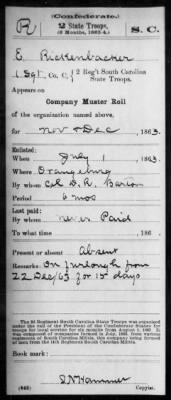 (Confederate.)
R 2 State Troops, S. C.
(6 Months, 1863-4.)
E Rickenbacker
1 Sgt, Co. C, 2 Reg't South Carolina State Troops.
Appears on
Company Muster Roll
of the organization named above,
for Nov & Dec, 1863.
When July 1, 1863.
Where Orangeburg
By whom Col D. R. Barton
Period 6 mos
Last paid:
By whom never Paid
To what time , 186 .
Present or absent Absent
Remarks: On furlough from
22 Dec/63 for 15 days
The 2d Regiment South Carolina State Troops was organized
under the call of the President of the Confederate States for
troops for local service for six months from August 1, 1863. It was
composed of companies formed in July, 1863, from various
regiments of South Carolina Militia, this company being
formed of men from the
Regiment South Carolina Militia.
Book mark:
Copyist.